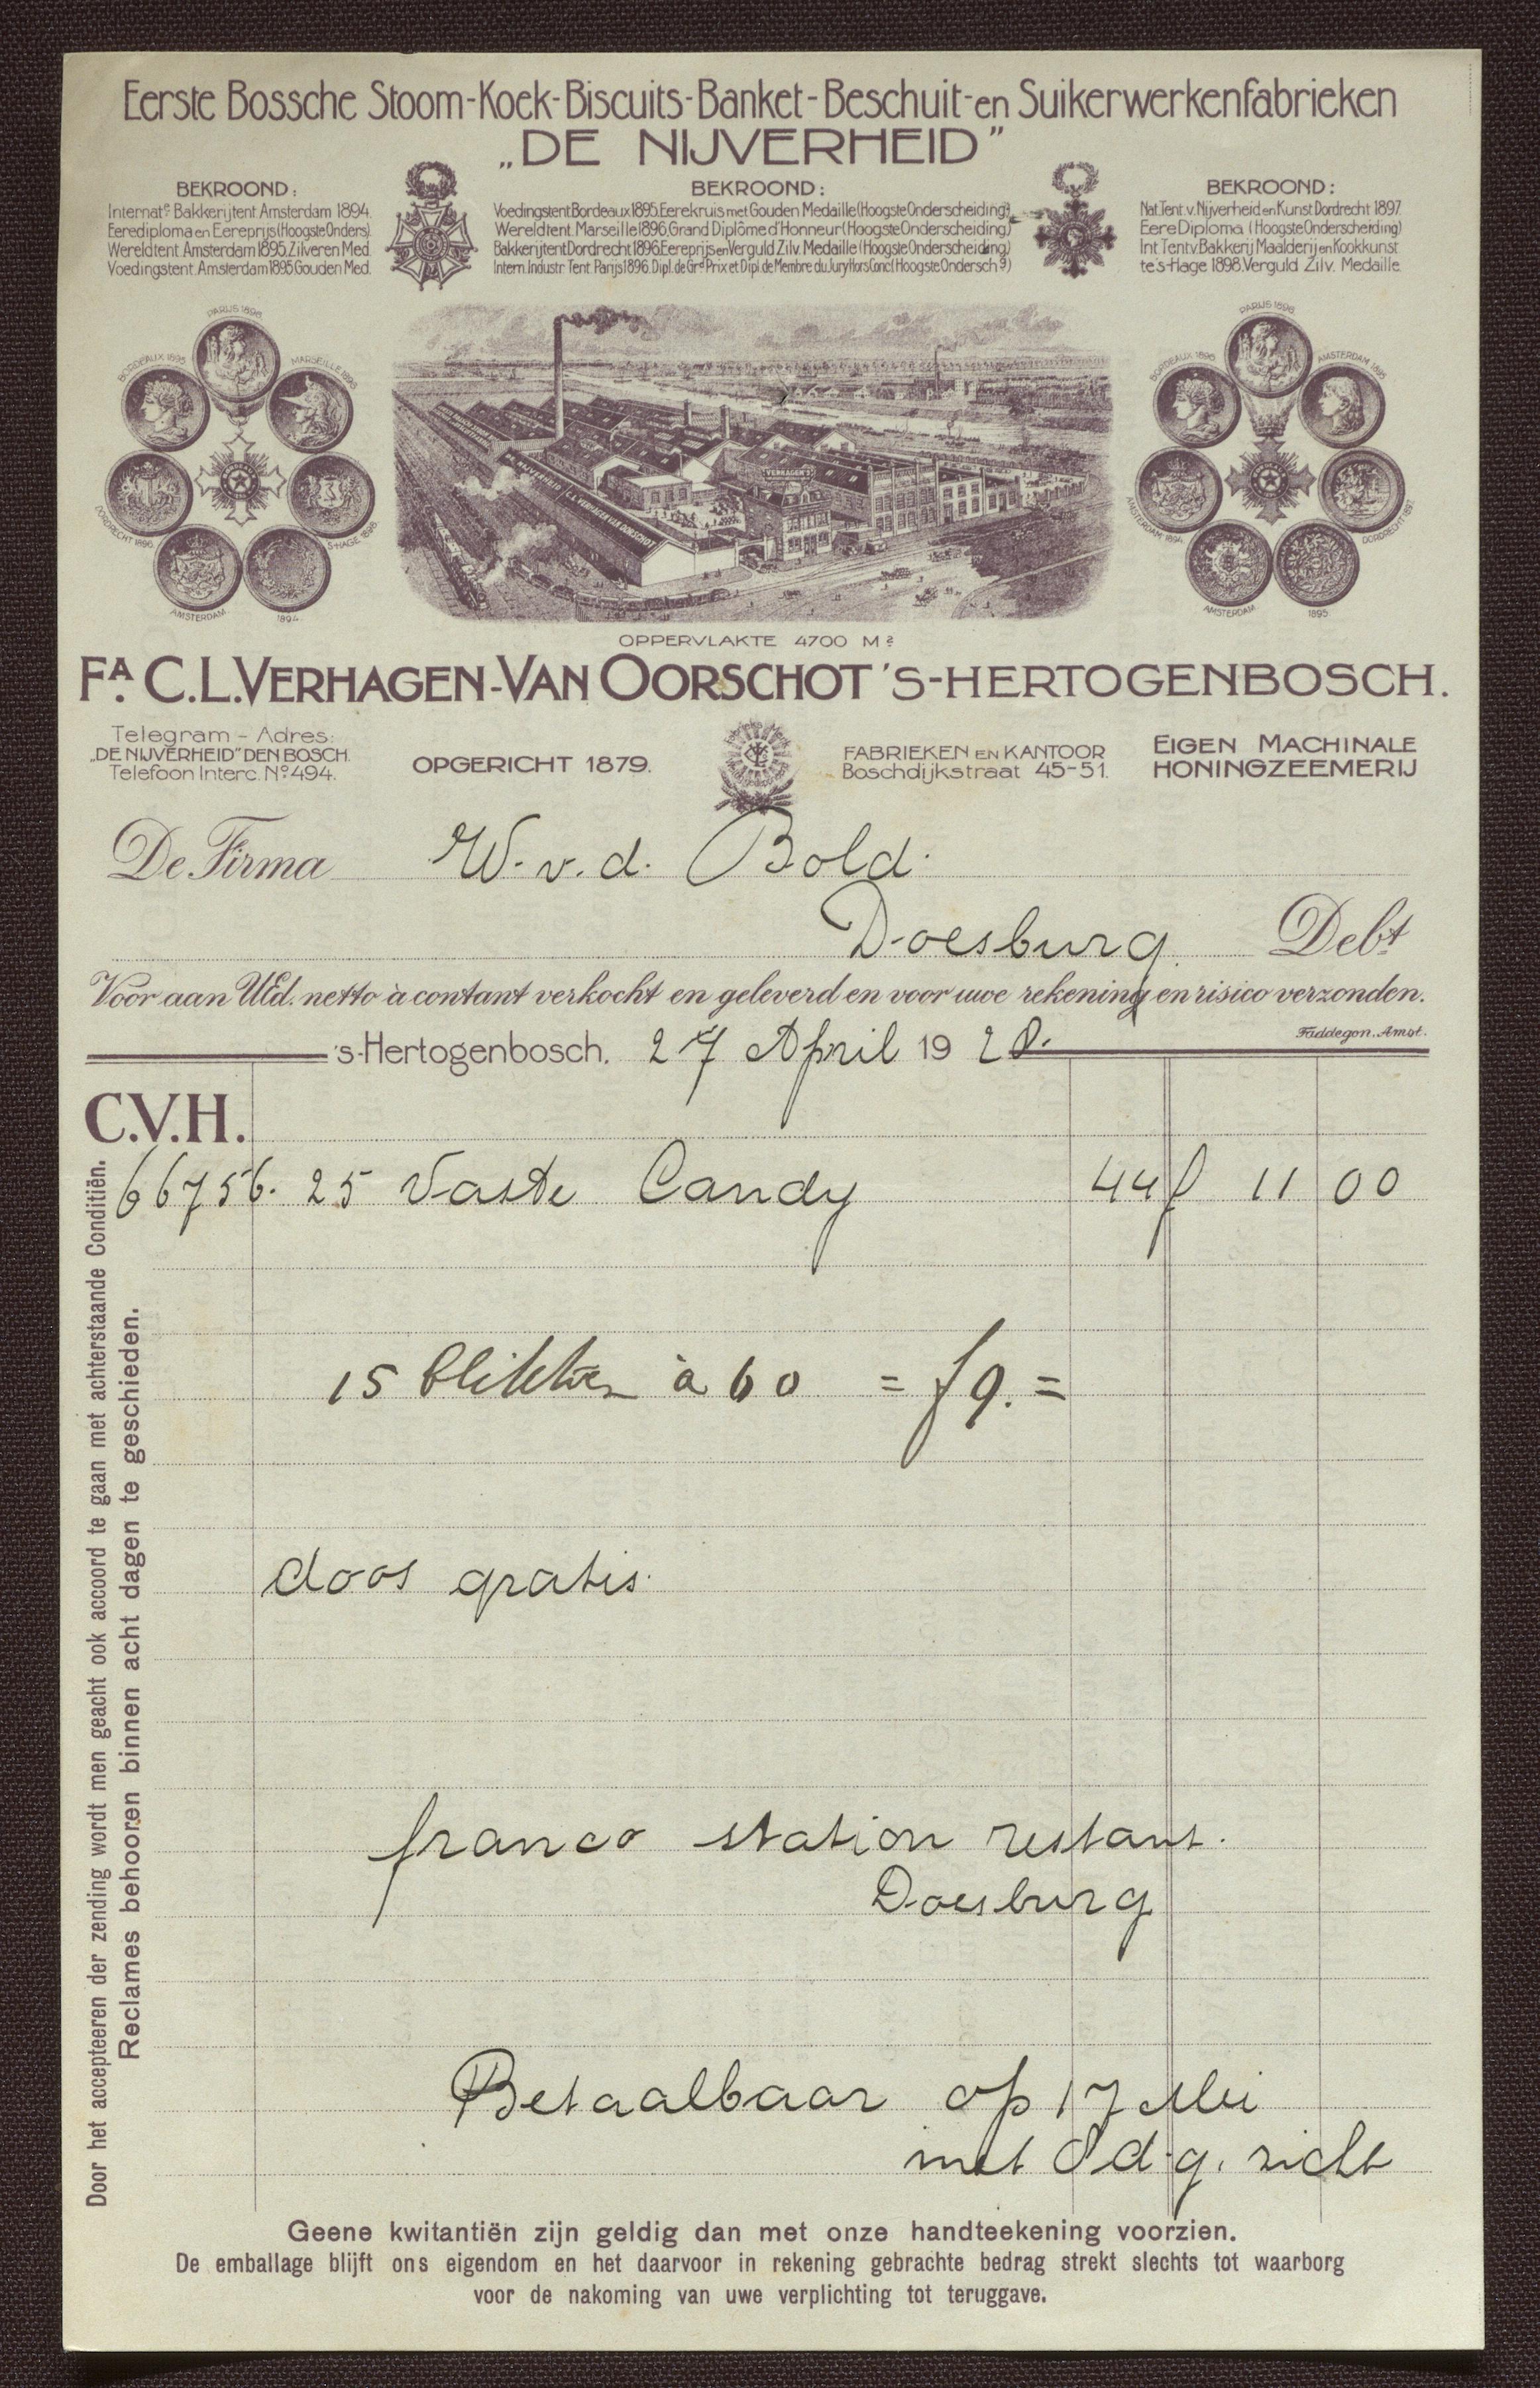 Eerste Bossche Stoom-Koek-Biscuits-Banket-Beschuit-en Suikerwerkenfabrieken
„DE NIJVERHEID”
BEKROOND:
Internatᵉ Bakkerijtent Amsterdam 1894.
Eerediploma en Eereprijs (Hoogste Onders).
Wereldtent. Amsterdam 1895. Zilveren Med.
Voedingstent. Amsterdam 1895 Gouden Med.
BEKROOND:
Voedingstent Bordeaux 1895. Eerekruis met Gouden Medaille (Hoogste Onderscheiding).
Wereldtent. Marseille 1896, Grand Diplôme d'Honneur (Hoogste Onderscheiding)
Bakkerijtent Dordrecht 1896 Eereprijs en Verguld Zilv. Medaille (Hoogste Onderscheiding)
Intern. Industr. Tent. Parijs 1896. Dipl. de Grᵈ Prix et Dipl. de Membre du Jury Hors Conc (Hoogste Ondersch⁹)
BEKROOND:
Nat. Tent. v. Nijverheid en Kunst Dordrecht 1897.
Eere Diploma (Hoogste Onderscheiding)
Int Tent v. Bakkerij Maalderij en Kookkunst
te 's-Hage 1898. Verguld Zilv. Medaille.
PARIJS 1896
BORDEAUX 1895
MARSEILLE 1896
DORDRECHT 1896
S-HAGE 1898
AMSTERDAM 1894
PARIJS 1896
BORDEAUX 1895
AMSTERDAM 1895
AMSTERDAM 1894
DORDRECHT 1897
AMSTERDAM 1895
VERHAGEN'S
DE NIJVERHEID C.L. VERHAGEN VAN OORSCHOT
OPPERVLAKTE 4700 M²
Fᴬ. C.L. VERHAGEN-VAN OORSCHOT 'S-HERTOGENBOSCH.
Telegram-Adres:
„DE NIJVERHEID” DEN BOSCH.
Telefoon Interc. Nº 494.
OPGERICHT 1879.
FABRIEKEN EN KANTOOR
Boschdijkstraat 45-51.
EIGEN MACHINALE
HONINGZEEMERIJ
De Firma W. v. d. Bold.
Doesburg. Debt
Voor aan UEd. netto à contant verkocht en geleverd en voor uwe rekening en risico verzonden.
Faddegon. Amst.
's-Hertogenbosch, 27 April 1928.
C.V.H.
66756. 25 Vaste Candy 44 f 11 00
15 blikken à 60 = f 9. =
doos gratis.
franco station restant.
Doesburg
Betaalbaar op 17 Mei
met 8 d.g. zicht
Door het accepteeren der zending wordt men geacht ook accoord te gaan met achterstaande Conditiën.
Reclames behooren binnen acht dagen te geschieden.
Geene kwitantiën zijn geldig dan met onze handteekening voorzien.
De emballage blijft ons eigendom en het daarvoor in rekening gebrachte bedrag strekt slechts tot waarborg
voor de nakoming van uwe verplichting tot teruggave.